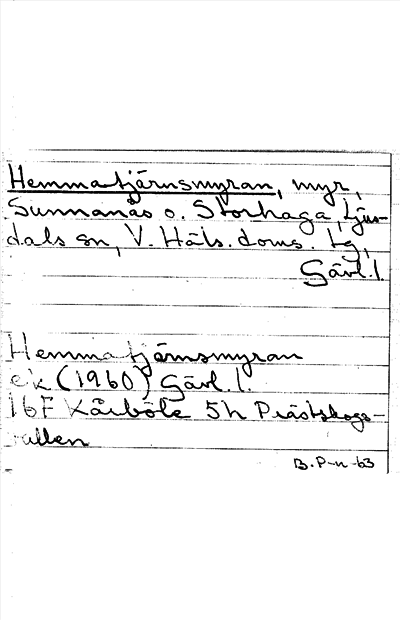 Hemmatjärnsmyran, myr,
Sunnanås o. Storhaga, Ljus-
dals sn, V. Häls. doms. tg,
Gävl. l.
Hemmatjärnsmyran
ek (1960) Gävl. l.
16F Kårböle 5h Prästskogs-
vallen
B. P-n -63